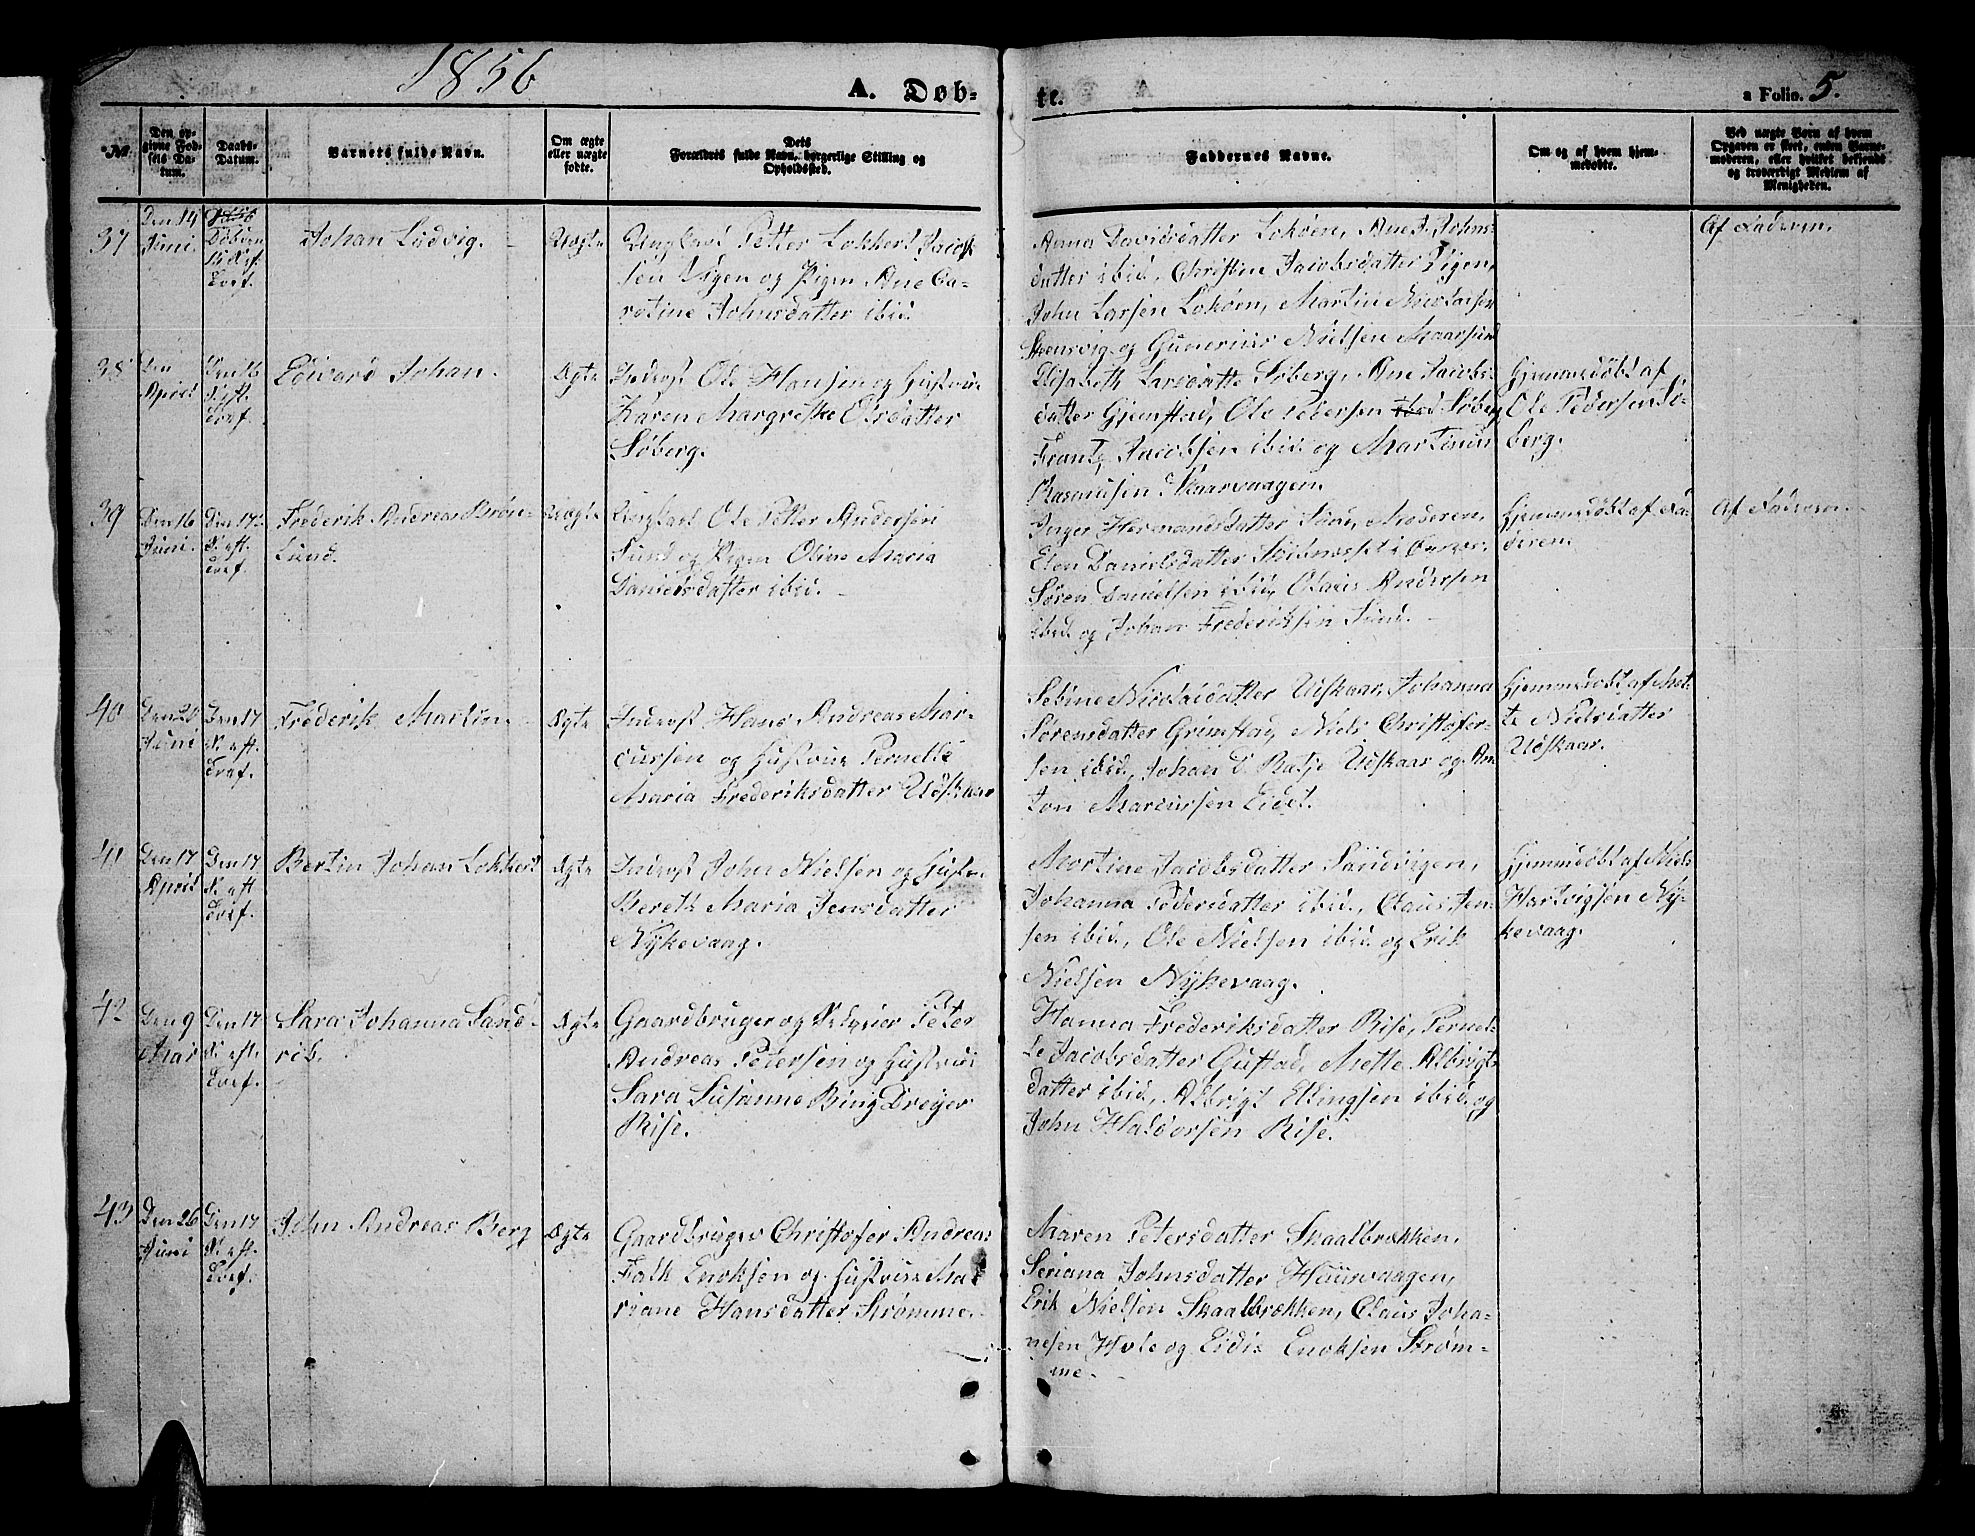 1856
A. Døb-
te.
a Folio. 5.
№
Den op-
givne Fød-
sels Da-
tum.
Daabs-
Datum.
Barnets fulde Navn.
Om ægte
eller uægte
fødte.
Dets
Forældres fulde Navn, borgerlige Stilling og
Opholdssted.
Faddernes Navne.
Om og af hvem hjem-
medøbte.
Ved uægte Børn af hvem
Opgaven er skeet, enten Barne-
moderen, eller hvilket bekjendt
og troværdigt Medlem af
Menigheden.
37
Den 14
Juni.
Johan Ludvig.
Uægte
Ungkarl Petter Lokkert Jacob-
sen Vigen og Pigen Ane Ca-
rotine Johnsdatter ibid.
Anna Davidsdatter Lokøen, Ane J. Johns-
datter ibid, Christin Jacobsdatter Vigen,
John Larsen Lokøen, Martin Nicolaisen
Steensvig og Gunerius Nielsen Maarsund
Af Faderen.
38
Den
April
Den 16
S. eft.
Tref.
Edvard Johan.
Ægte
Inderst Ole Hansen og Hustrue
Karen Margrethe Olsdatter
Søberg.
Elisabeth Larsdatte Søberg, Ane Jacobs-
datter Gjemstad, Ole Pedersen ibid Søberg
Frantz Jacobsen ibid og Martinus
Rasmusen Skaarvaagen.
Hjemmedøbt af
Ole Pedersen Sø-
berg.
39
Den 16
Juni.
Den 17
S. eft.
Tref.
Frederik Andreas Brön-
Lund.
Uægte
Ungkarl Ole Petter Andersen
Sund og Pigen Oline Maria
Danielsdatter ibid.
Inger Hermandsdatter Sund, Moderen,
Elen Danielsdatter
Søren Danielsen ibid, Olaus Andersen
ibid og Johan Frederiksen Sund.
Hjemmedøbt af Fa-
deren.
Af Faderen.
40
Den 20
Juni
Den 17
S. eft.
Tref.
Frederik Martin.
Ægte
Inderst Hans Andreas Mar-
cussen og Hustrue Pernelle
Maria Frederiksdatter Udskaar
Sebine Nicolaidatter Udskaar, Johanna
Sørensdatter Grimstad, Niels Christofer-
sen ibid, Johan D. Ratje Udskaar og An-
ton Marcussen Eidet.
Hjemmedøbt af Met-
te Nielsdatter
Udskaar.
41
Den 17
April
Den 17
S. eft
Tref.
Bertin Johan Lokkert
Ægte
Inderst John Nielsen og Hustr.
Bereth Maria Jensdatter
Nykevaag.
Martine Jacobsdatter Sandvigen,
Johanna Pedersdatter ibid, Claus Jen-
sen ibid, Ole Nielsen ibid og Erik
Nielsen Nykevaag.
Hjemmedøbt af Niels
Hartvigsen Ny-
kevaag.
42
Den 9
Mai
Den 17
S. eft.
Tref.
Sara Johanna Sand-
rib.
Ægte
Gaardbruger og Peter
Andreas Petersen og Hustrue
Sara Susanne Bing Dreyer
Rise.
Hanna Frederiksdatter Rise, Pernel-
le Jacobsdatter Gustad, Mette Albrigts-
datter ibid, Albrigt Ellingsen ibid og
John Haldorsen Rise.
43
Den 26
Juni
Den 17
S. eft.
Tref.
John Andreas Berg
Ægte
Gaardbruger Christofer Andreas
Falk Enoksen og Hustrue Ma-
riane Hansdatter Strømme.
Maren Petersdatter Skaalbrækken,
Seriana Johnsdatter Hausvaagen,
Erik Nielsen Skaalbrækken, Claus Joha-
nesen Hole og Eidis Enoksen Strøm-
me.